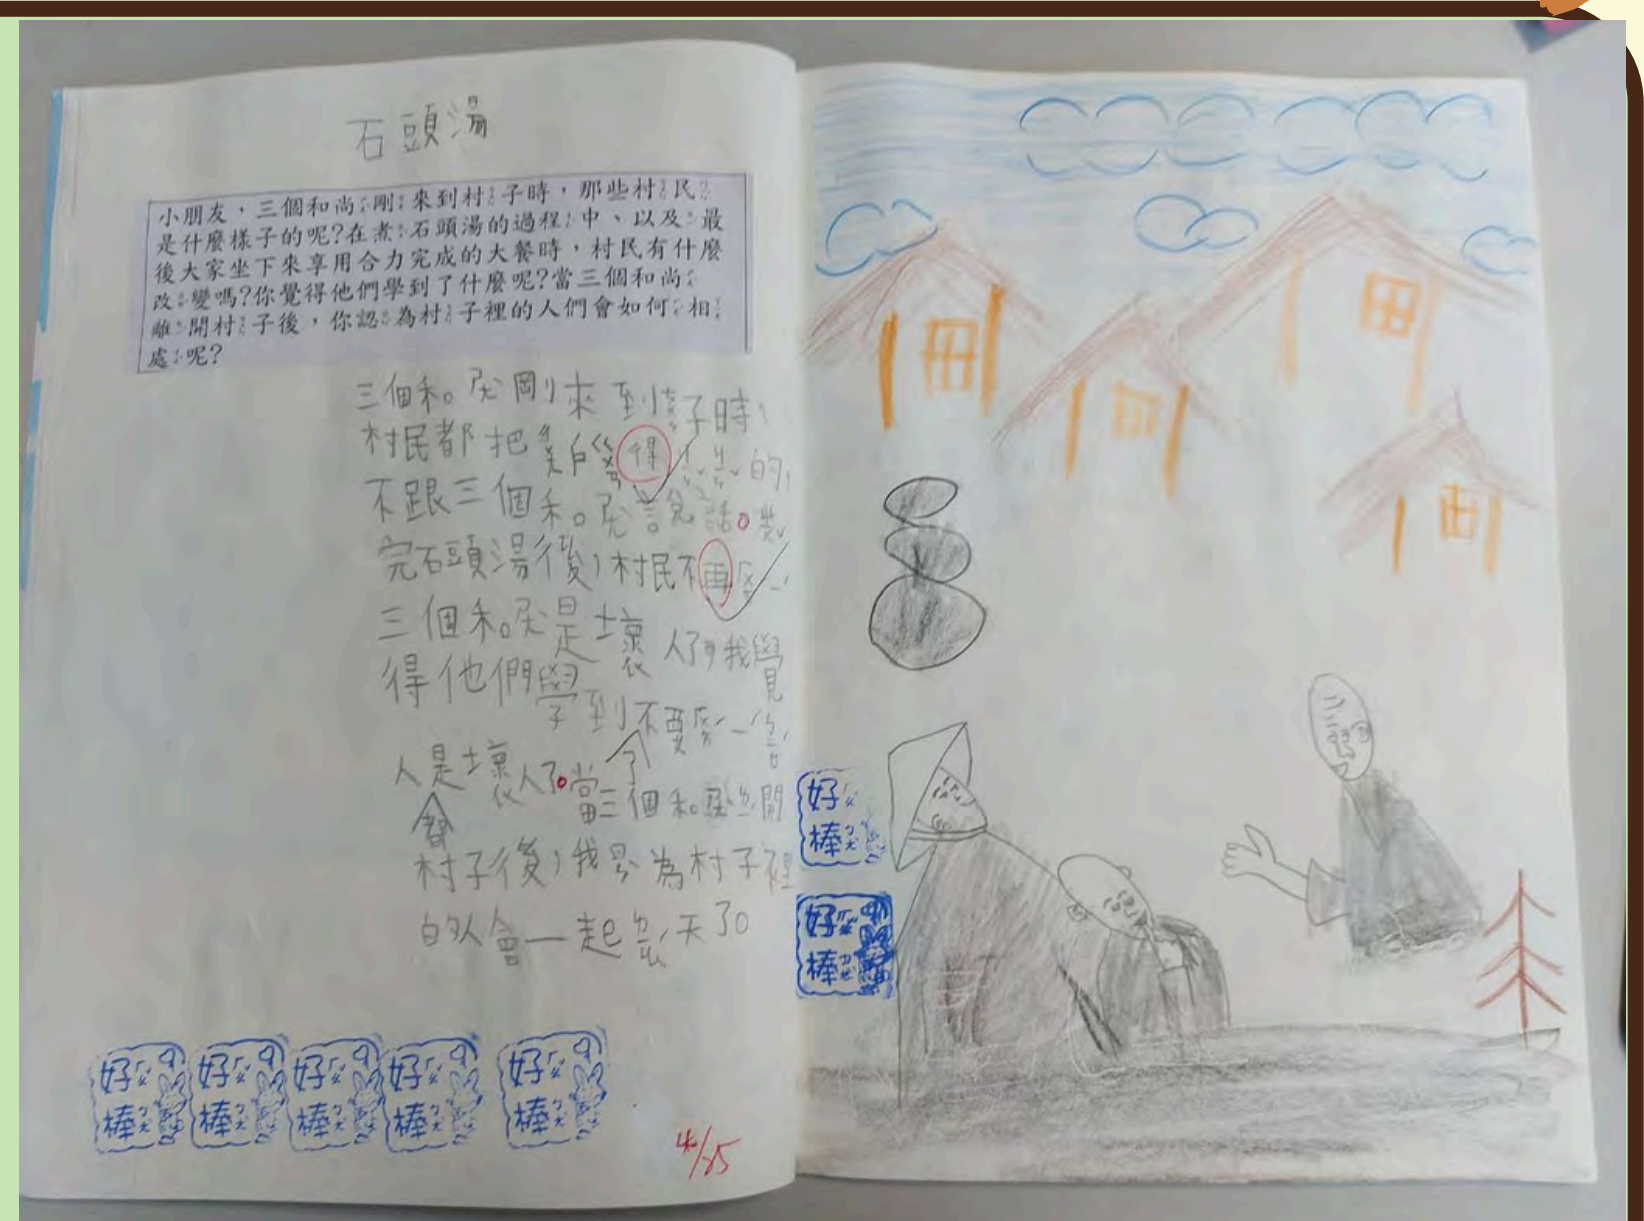 石頭湯
小朋友，三個和尚剛來到村子時，那些村民
是什麼樣子的呢?在煮石頭湯的過程中、以及最
後大家坐下來享用合力完成的大餐時，村民有什麼
改變嗎?你覺得他們學到了什麼呢?當三個和尚
離開村子後，你認為村子裡的人們會如何相
處呢?
三個和 剛來到 子時，
村民都把 戶 得 的，
不跟三個和 說話。煮
完石頭湯後，村民不再
三個和 是壞人了，我覺
得他們學到不要
人是壞人了。當三個和 開
村子後，我 為村子裡
的人會一起 天了。
好棒
好棒
好棒
好棒
好棒
4/25
好棒
好棒